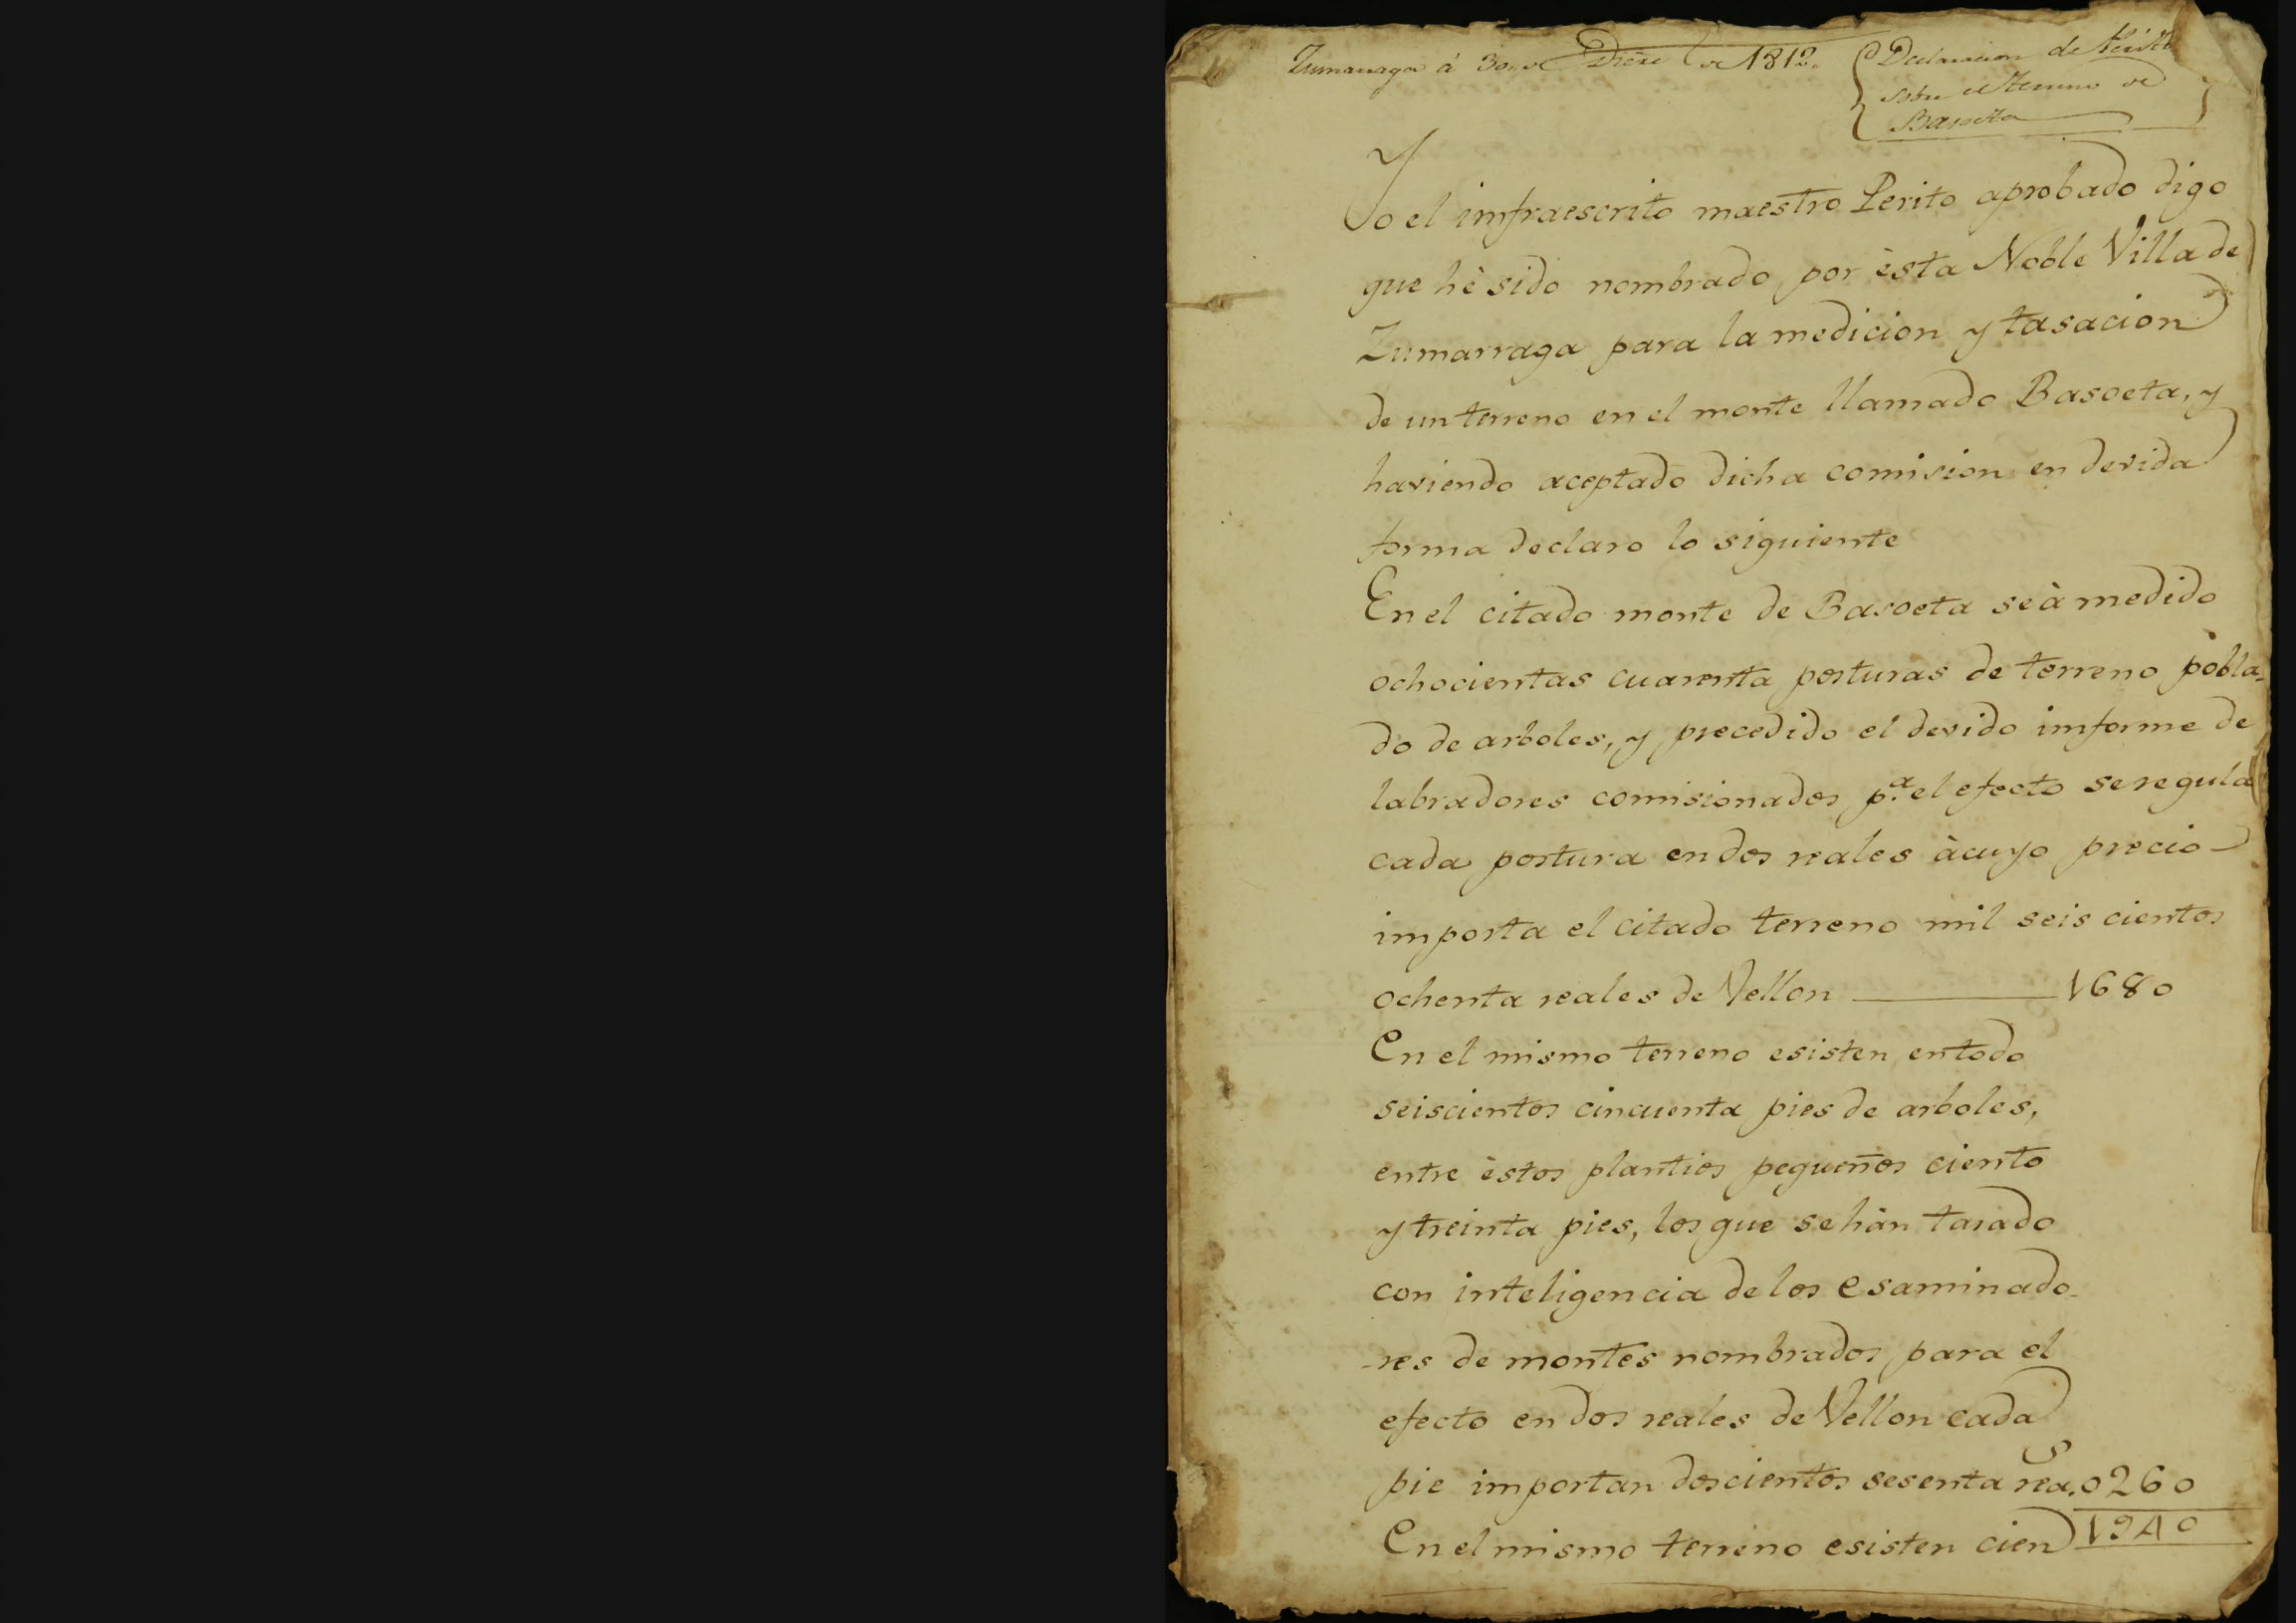 Zumarraga á 30 de Dicre de 1812.
Declaracion de Perito
sobre el terreno de
Basoeta
Yo el imfraescrito maestro Perito aprobado digo
que hè sido nombrado por èsta Noble Villa de
Zumarraga para la medicion y tasacion
de un terreno en el monte llamado Basoeta, y
haviendo aceptado dicha comision en devida
forma declaro lo siguiente
En el citado monte de Basoeta se à medido
ochocientas cuarenta posturas de terreno pobla-
do de arboles, y precedido el devido imforme de
labradores comisionados p.a el efecto se regula
cada postura en dos reales à cuyo precio
importa el citado terreno mil seis cientos
ochenta reales de Vellon 1680
En el mismo terreno esisten en todo
seiscientos cincuenta pies de arboles,
entre èstos plantios pequeños ciento
y treinta pies, los que se hàn tasado
con inteligencia de los esaminado-
-res de montes nombrados para el
efecto en dos reales de Vellon cada
pie importan doscientos sesenta rea.s 0260
En el mismo terreno esisten cien 1940